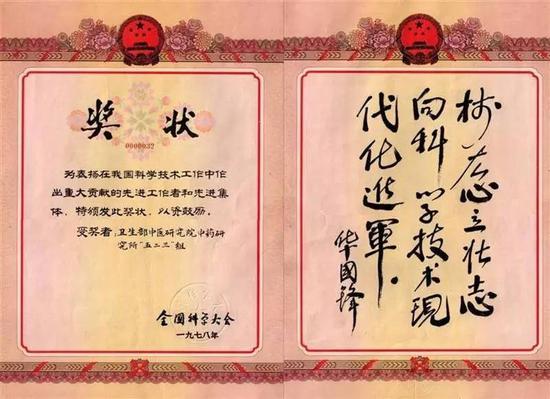 奖状
0000032
为表扬在我国科学技术工作中作
出重大贡献的先进工作者和先进集
体，特颁发此奖状，以资鼓励。
受奖者：卫生部中医研究院中药研
究所“五二三”组
全国科学大会
一九七八年
树雄心立壮志
向科学技术現
代化進軍。
华國锋